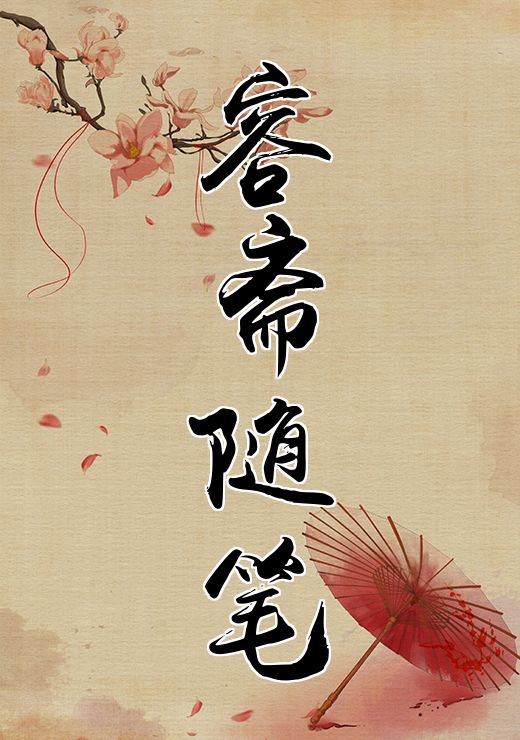 容斋随笔